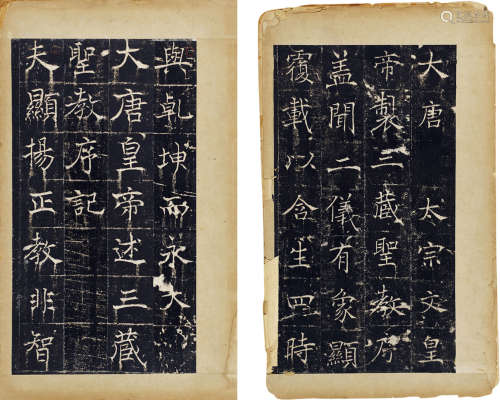 大唐 太宗文皇
帝製三藏聖教序
盖聞二儀有象顯
覆載以含生四時
與乹坤而永大
大唐皇帝述三藏
聖教序記
夫顯揚正教非智